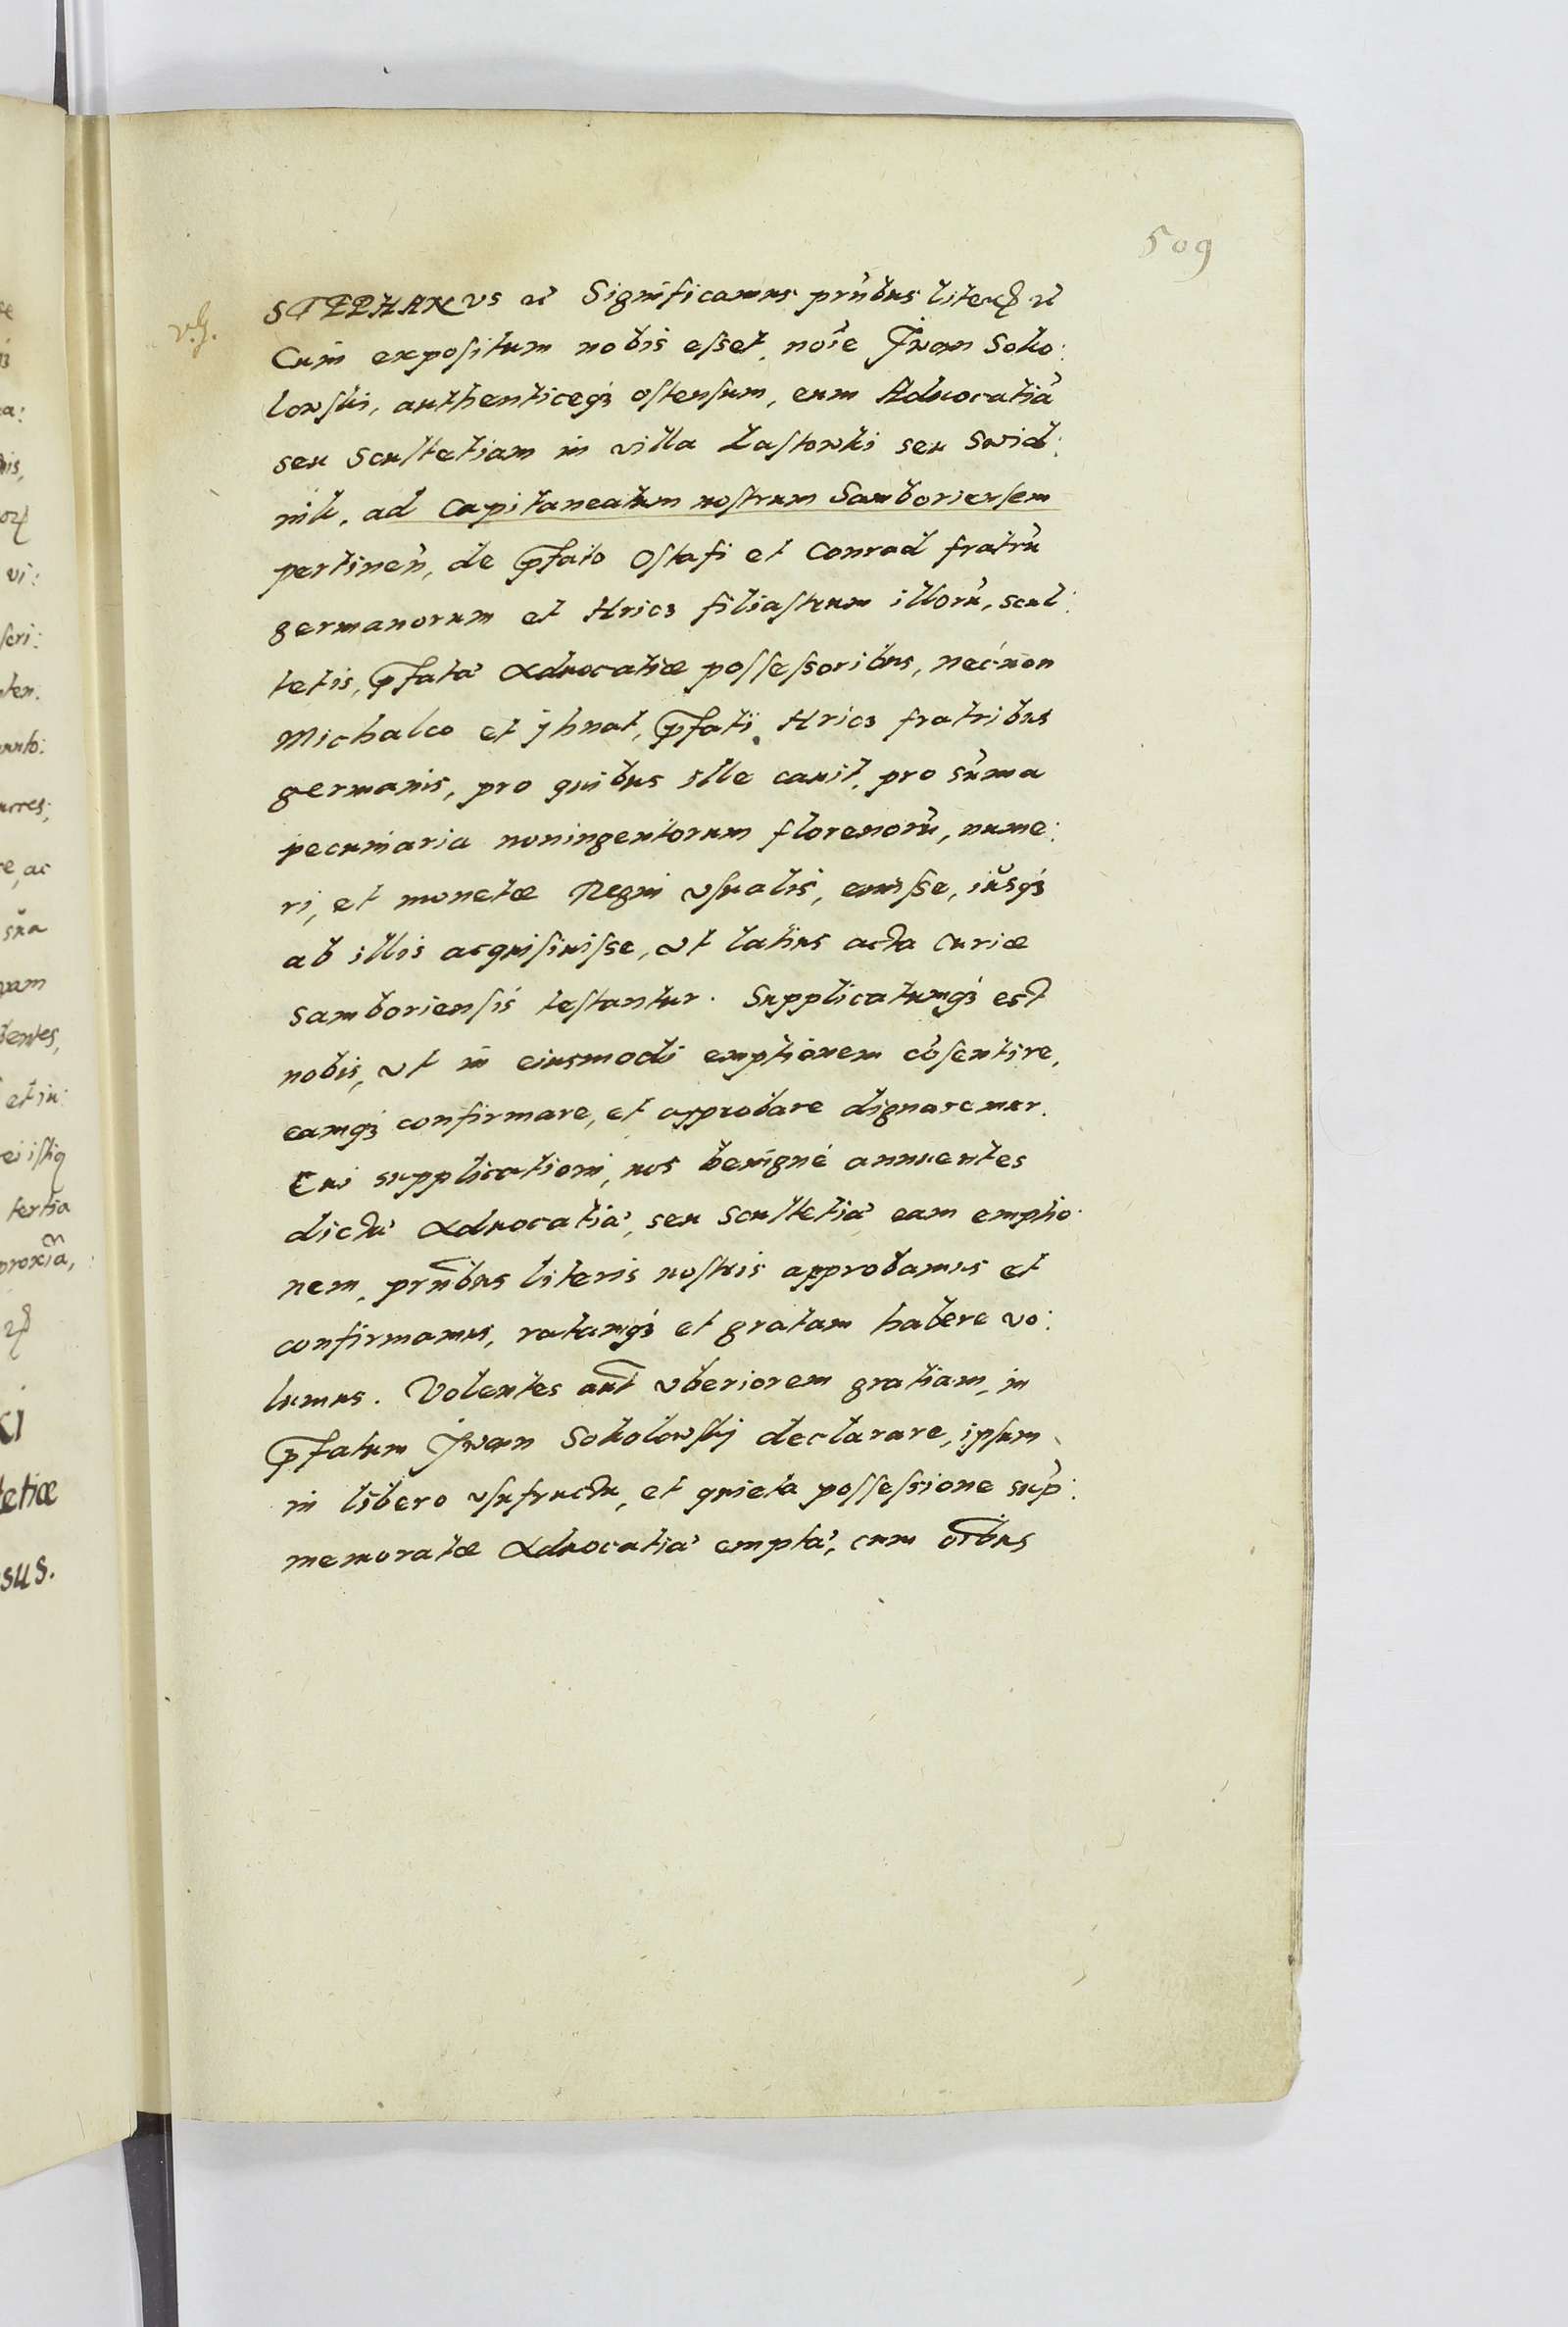 509
STEPHANVS etc Significamus prñbus literis etc
Cum expositum nobis esset, noie Jwan Soko:
lowski, authenticeq₃ ostensum, eum Aduocatiã
seu Scultetiam in villa Lastowki seu Swid:
nik, ad Capitaneatum nostrum Samboriensem
pertineñ, de p̃fato Ostafi et Conrad fratrũ
germanorum et Hricz filiastrum illorũ, scul:
tetis, p̃fatã Aduocatiæ possessoribus, nec non
Michalco et jhnat, p̃fati Hricz fratribus
germanis, pro quibus ille cauit, pro sũma
pecuniaria noningentorum florenorũ, nume:
ri, et monetæ Regni vsualis, emisse, iusq₃
ab illis acquisiuisse, vt latius acta Curiæ
Samboriensis testantur. Supplicatumq₃ est
nobis, vt in eiusmodi emptionem cõsentire,
eamq₃ confirmare, et approbare dignaremur.
Cui supplicationi, nos benigné annuentes
dictã Aduocatiã, seu Scultetiã eam emptio:
nem, prñbus literis nostris approbamus et
confirmamus, ratamq₃ et gratam habere vo:
lumus. Volentes aũt vberiorem gratiam, in
p̃fatum Jwan Sokolowskj declarare, ipsum
in libero vsufructu, et quieta possessione sup̃:
memoratæ Aduocatiã emptã, cum oĩbus
ha:
nis,
vi:
seri:
nten.
re, ac
sũa
et in:
tertia
proxĩa,
tetiæ
sus.